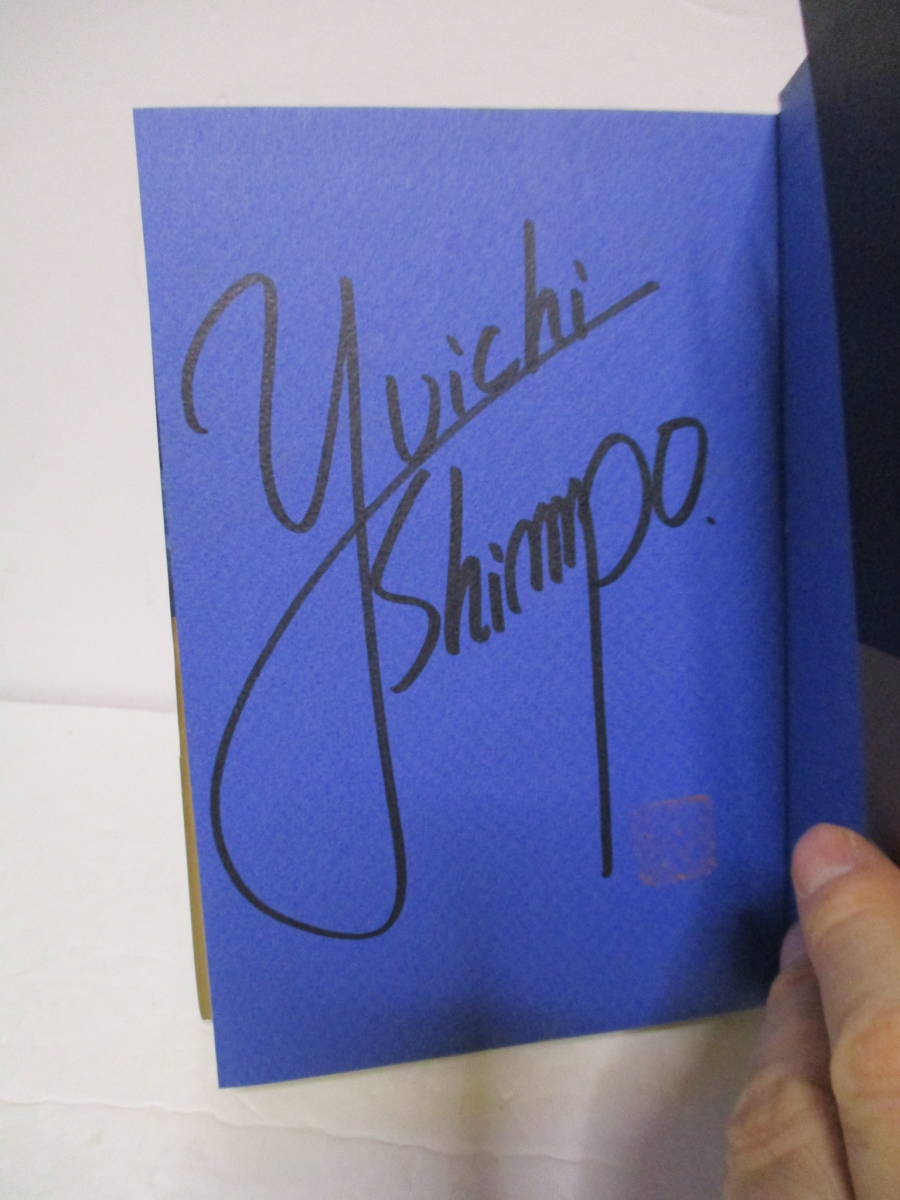 Yuichi
Shimpo.